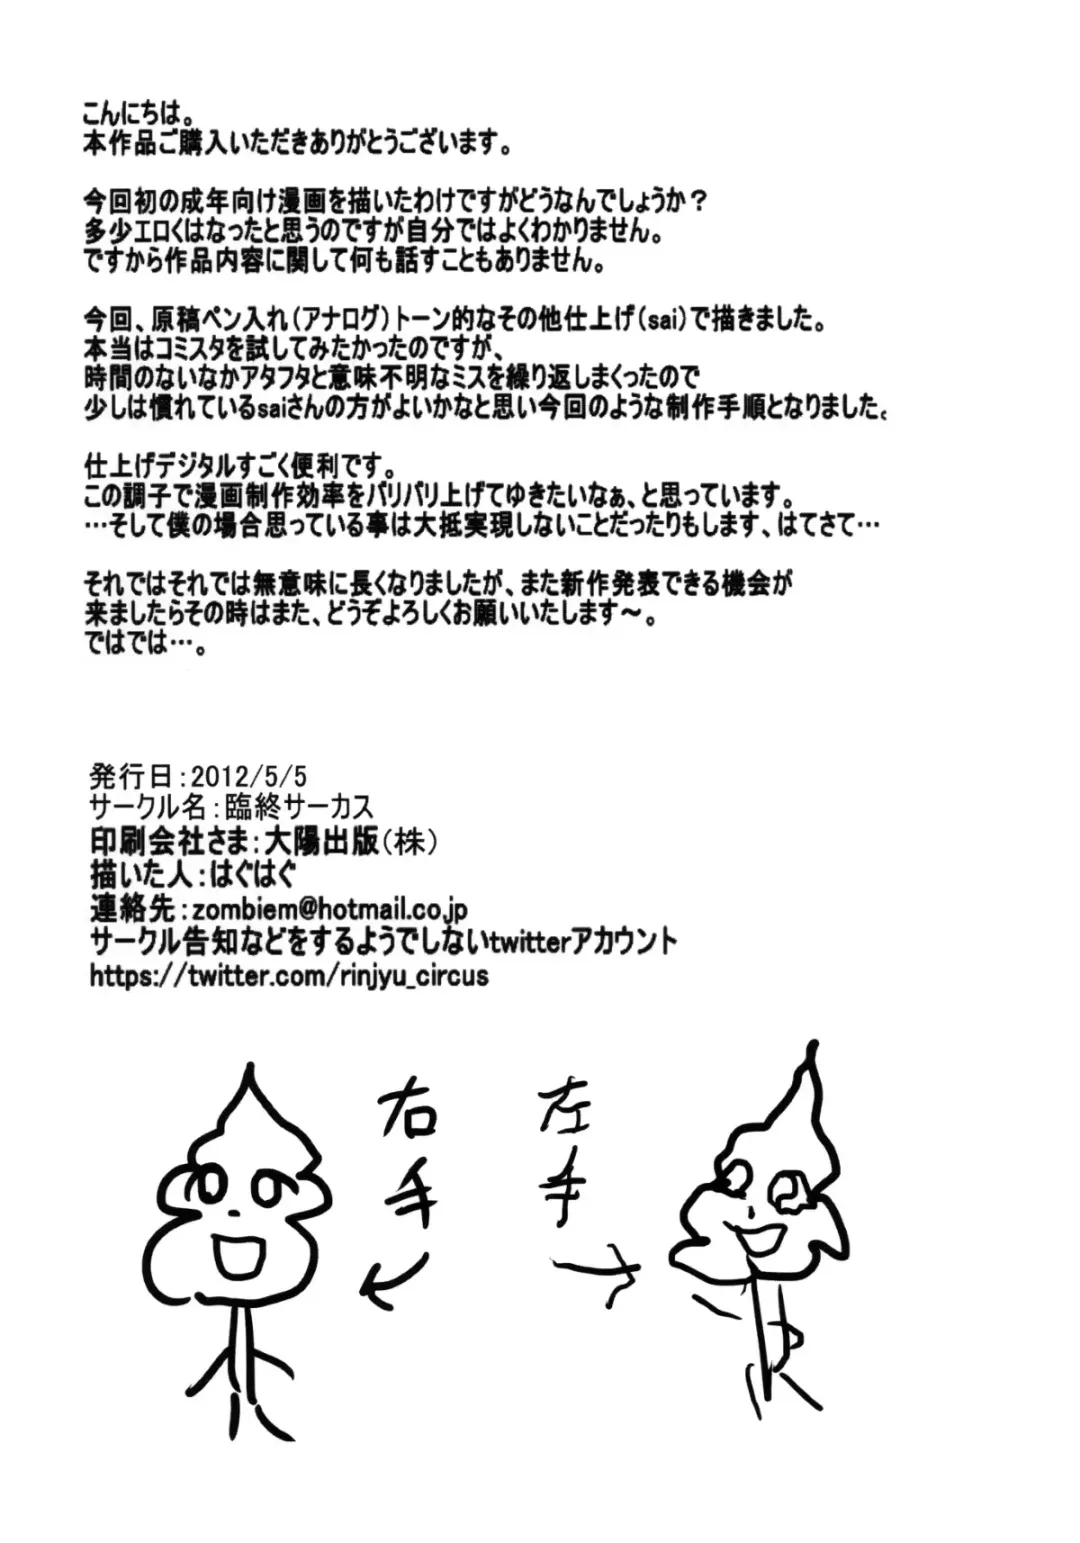 こんにちは。
本作品ご購入いただきありがとうございます。
今回初の成年向け漫画を描いたわけですがどうなんでしょうか？
多少エロくはなったと思うのですが自分ではよくわかりません。
ですから作品内容に関して何も話すこともありません。
今回、原稿ペン入れ（アナログ）トーン的なその他仕上げ（sai）で描きました。
本当はコミスタを試してみたかったのですが、
時間のないなかアタフタと意味不明なミスを繰り返しまくったので
少しは慣れているsaiさんの方がよいかなと思い今回のような制作手順となりました。
仕上げデジタルすごく便利です。
この調子で漫画制作効率をバリバリ上げてゆきたいなぁ、と思っています。
…そして僕の場合思っている事は大抵実現しないことだったりもします、はてさて…
それではそれでは無意味に長くなりましたが、また新作発表できる機会が
来ましたらその時はまた、どうぞよろしくお願いいたします～。
ではでは…。
発行日：2012/5/5
サークル名：臨終サーカス
印刷会社さま：大陽出版（株）
描いた人：はぐはぐ
連絡先：zombiem@hotmail.co.jp
サークル告知などをするようでしないtwitterアカウント
https://twitter.com/rinjyu_circus
右手
左手